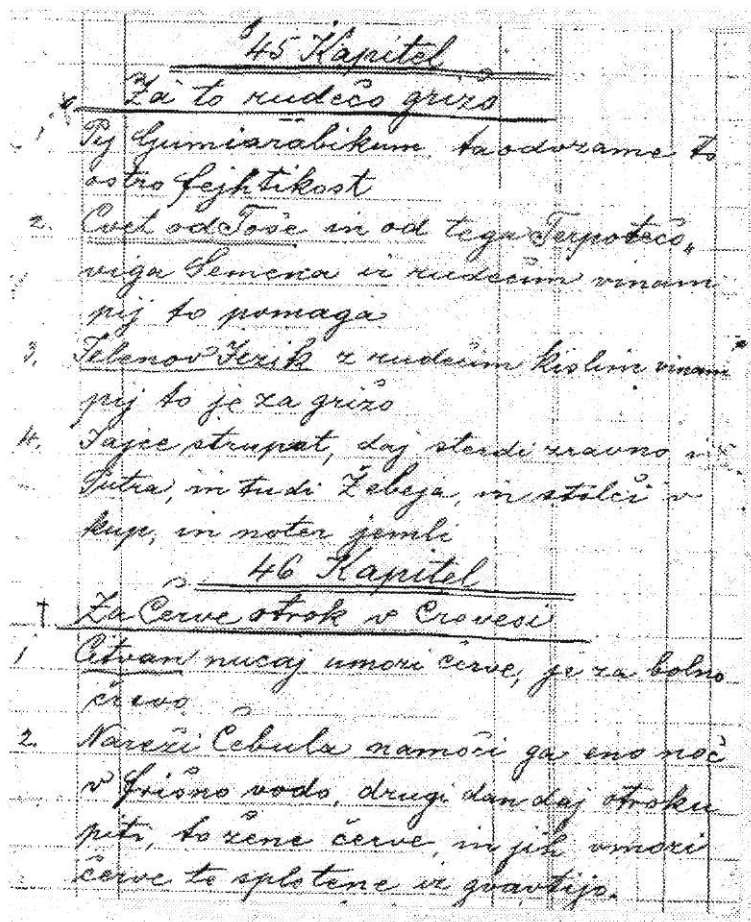 45 Kapitel
Za to rudečo grižo
1 Pij Gumiarabikum ta odvzame to
ostro fejhtikost
2. Cvet od Toše in od tega Terpotečo„
viga Semena iz rudečim vinam
pij to pomaga
3. Jelenov Jezik z rudečim kislim vinam
pij to je za grižo
4. Jajce strupat, daj sterdi zravno in
Putra, in tudi Žebeja, in stolči v
kup, in noter jemli
46 Kapitel
† Za Červe otrok v Crovesi
1 Citvan nucaj umori červe, je za bolno
črevo
2. Nareži Čebula namoči ga eno noč
v frišno vodo, drugi dan daj otroku
piti, to žene červe, in jih vmori
červe te spletene iz gvavtijo.